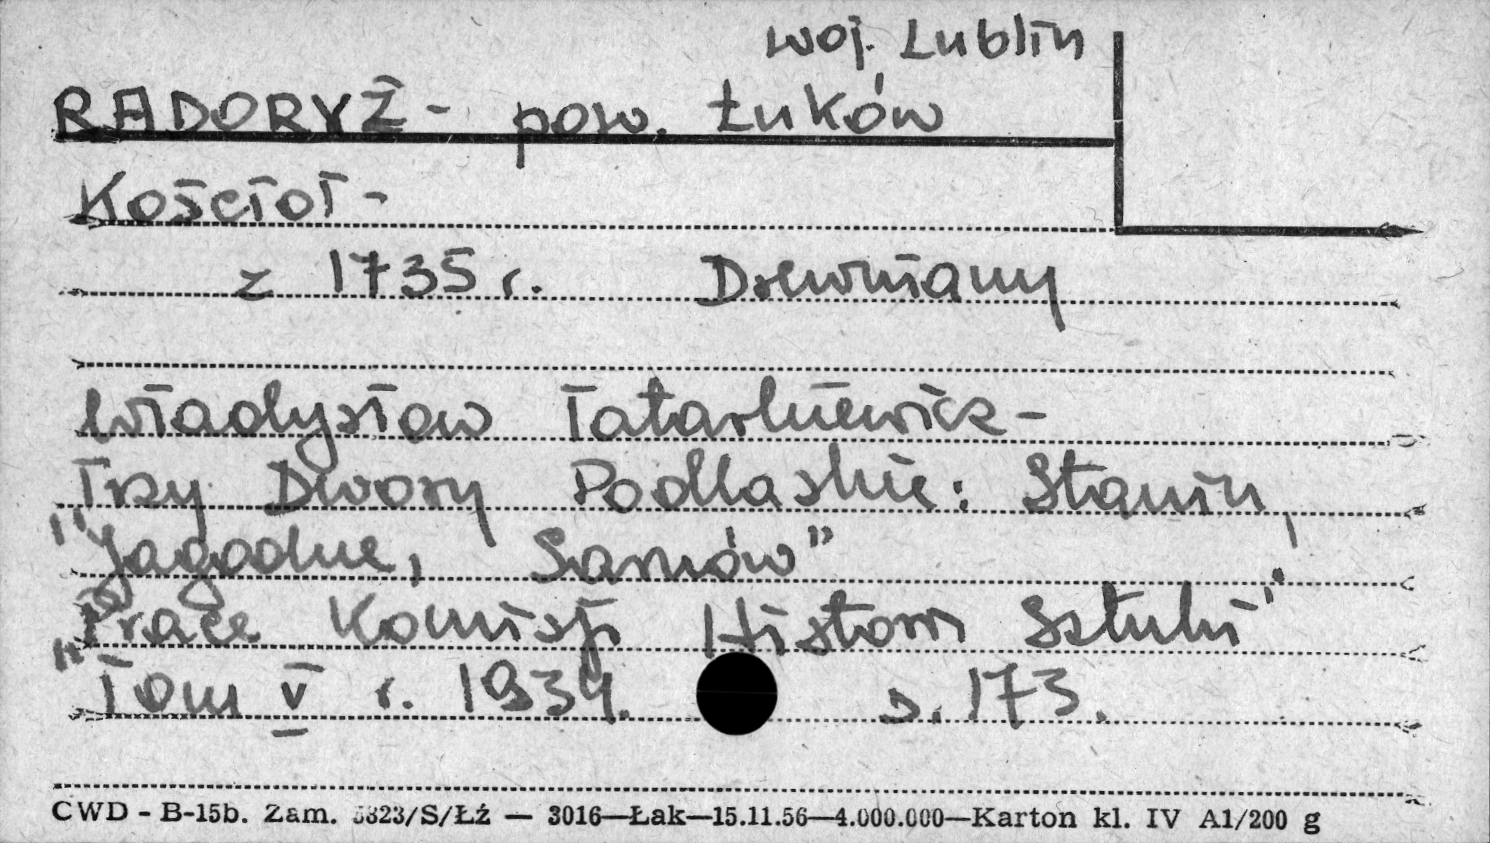 woj. Lublin
RADORYŻ - pow. Łuków
Kościoł -
z 1735 r. Drewniany
Władysław Tatarkiewicz -
Trzy Dwory Podlaskie: Stanin,
"Jagodne, Sarnów"
Prace Komisji Historii Sztuki"
"Tom V r. 1934. s. 173.
CWD - B-15b. Zam. 5323/S/Łź — 3016—Łak—15.11.56—4.000.000—Karton kl. IV A1/200 g